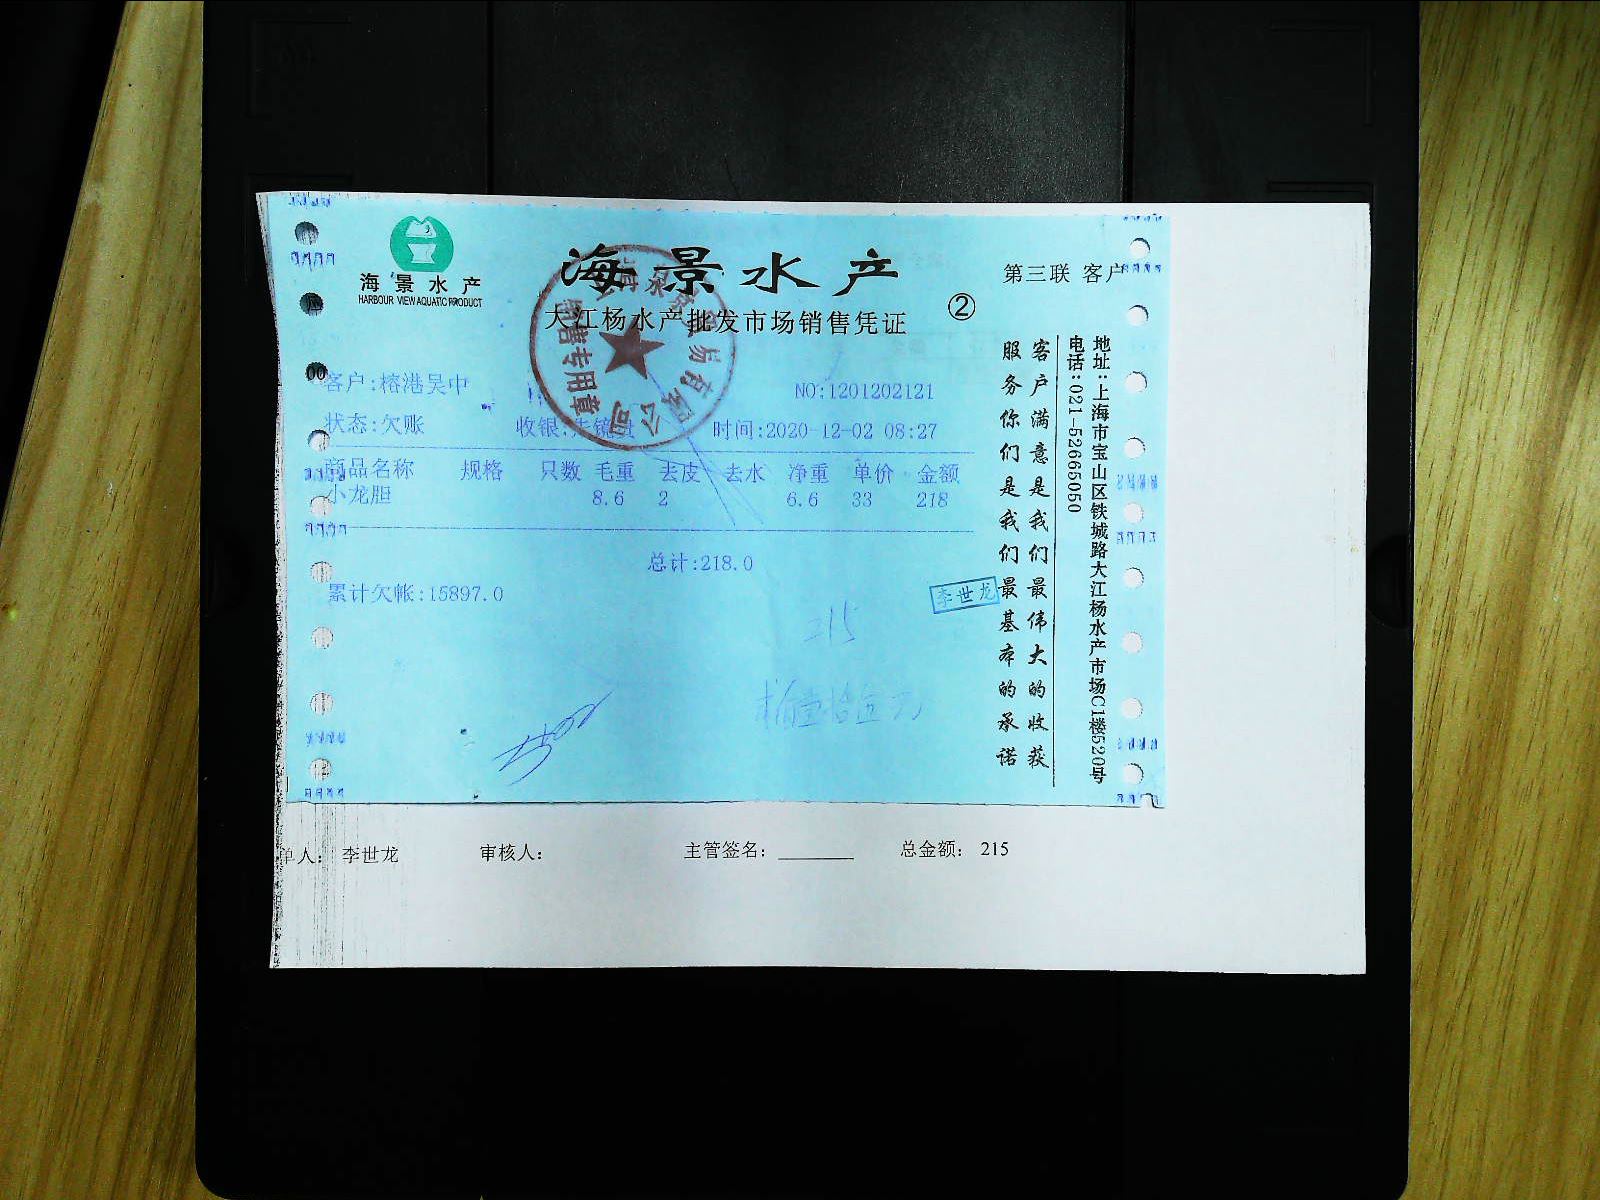 海景水产
HARBOUR VIEW AQUATIC PRODUCT
海景水产
大江杨水产批发市场销售凭证
②
第三联 客户
销售专用章
客户:榕港吴中
NO:1201202121
状态:欠账
收银:
时间:2020-12-02 08:27
商品名称 规格 只数 毛重 去皮 去水 净重 单价 金额
小龙胆 8.6 2 6.6 33 218
总计:218.0
累计欠帐:15897.0
李世龙
215
客户满意是我们最伟大的收获
服务你们是我们最基本的承诺
地址:上海市宝山区铁城路大江杨水产市场C1楼520号
电话:021-52665050
单人: 李世龙 审核人: 主管签名: ______ 总金额: 215